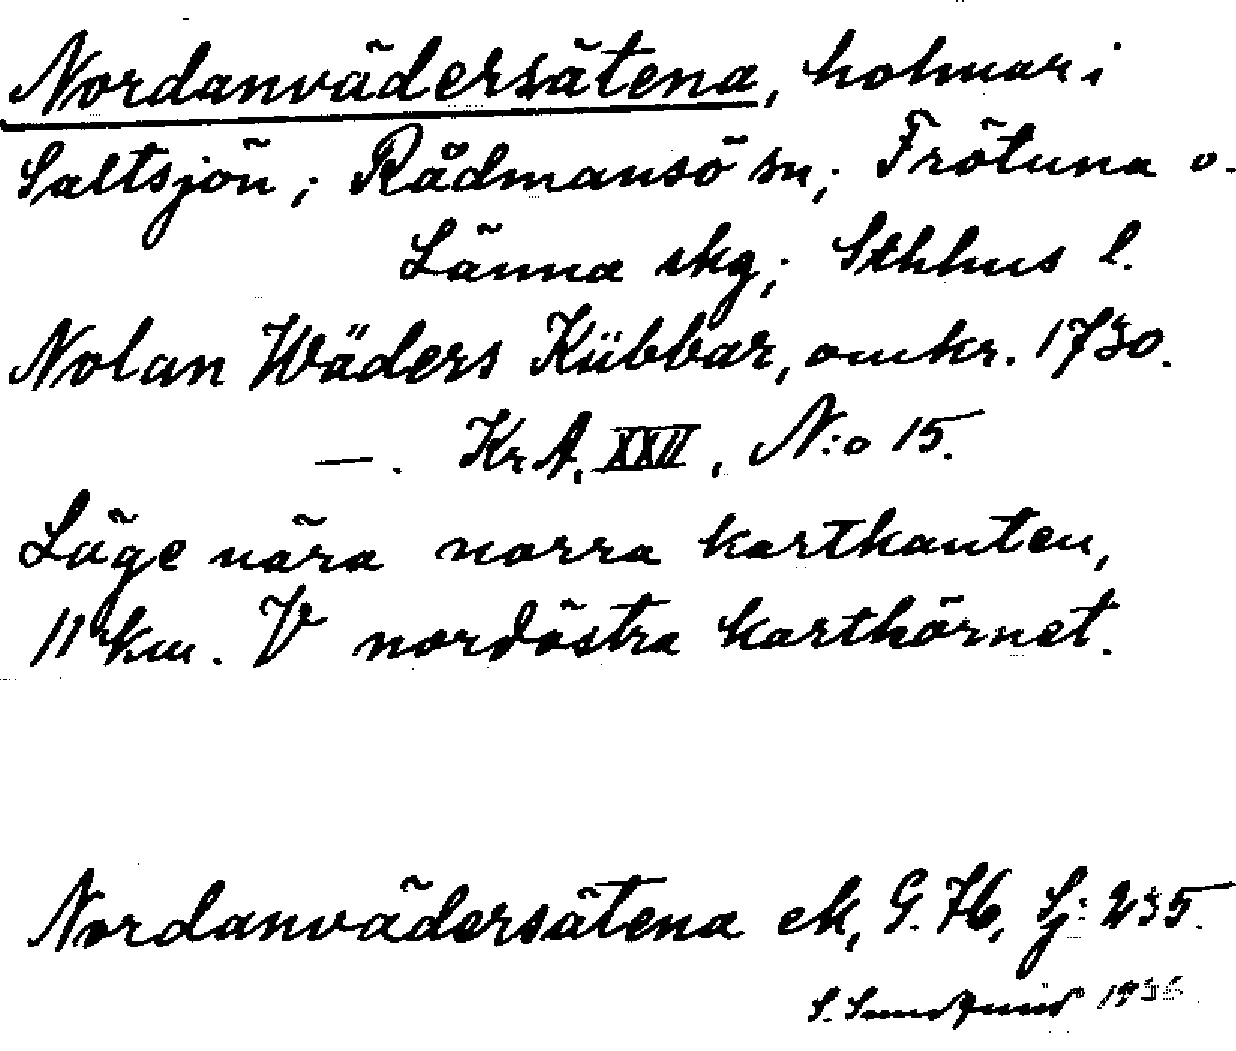 Nordanvädersätena, holmar i
Saltsjön; Rådmansö sn; Frötuna o.
Länna skg; Sthlms l.
Nolan Wäders Kübbar, omkr. 1730.
—. KrA, XXII, N:o 15.
Läge nära norra kartkanten,
11 km. V nordöstra karthörnet.
Nordanvädersätena ek, G. 76, Sj: 235.
S. 1936